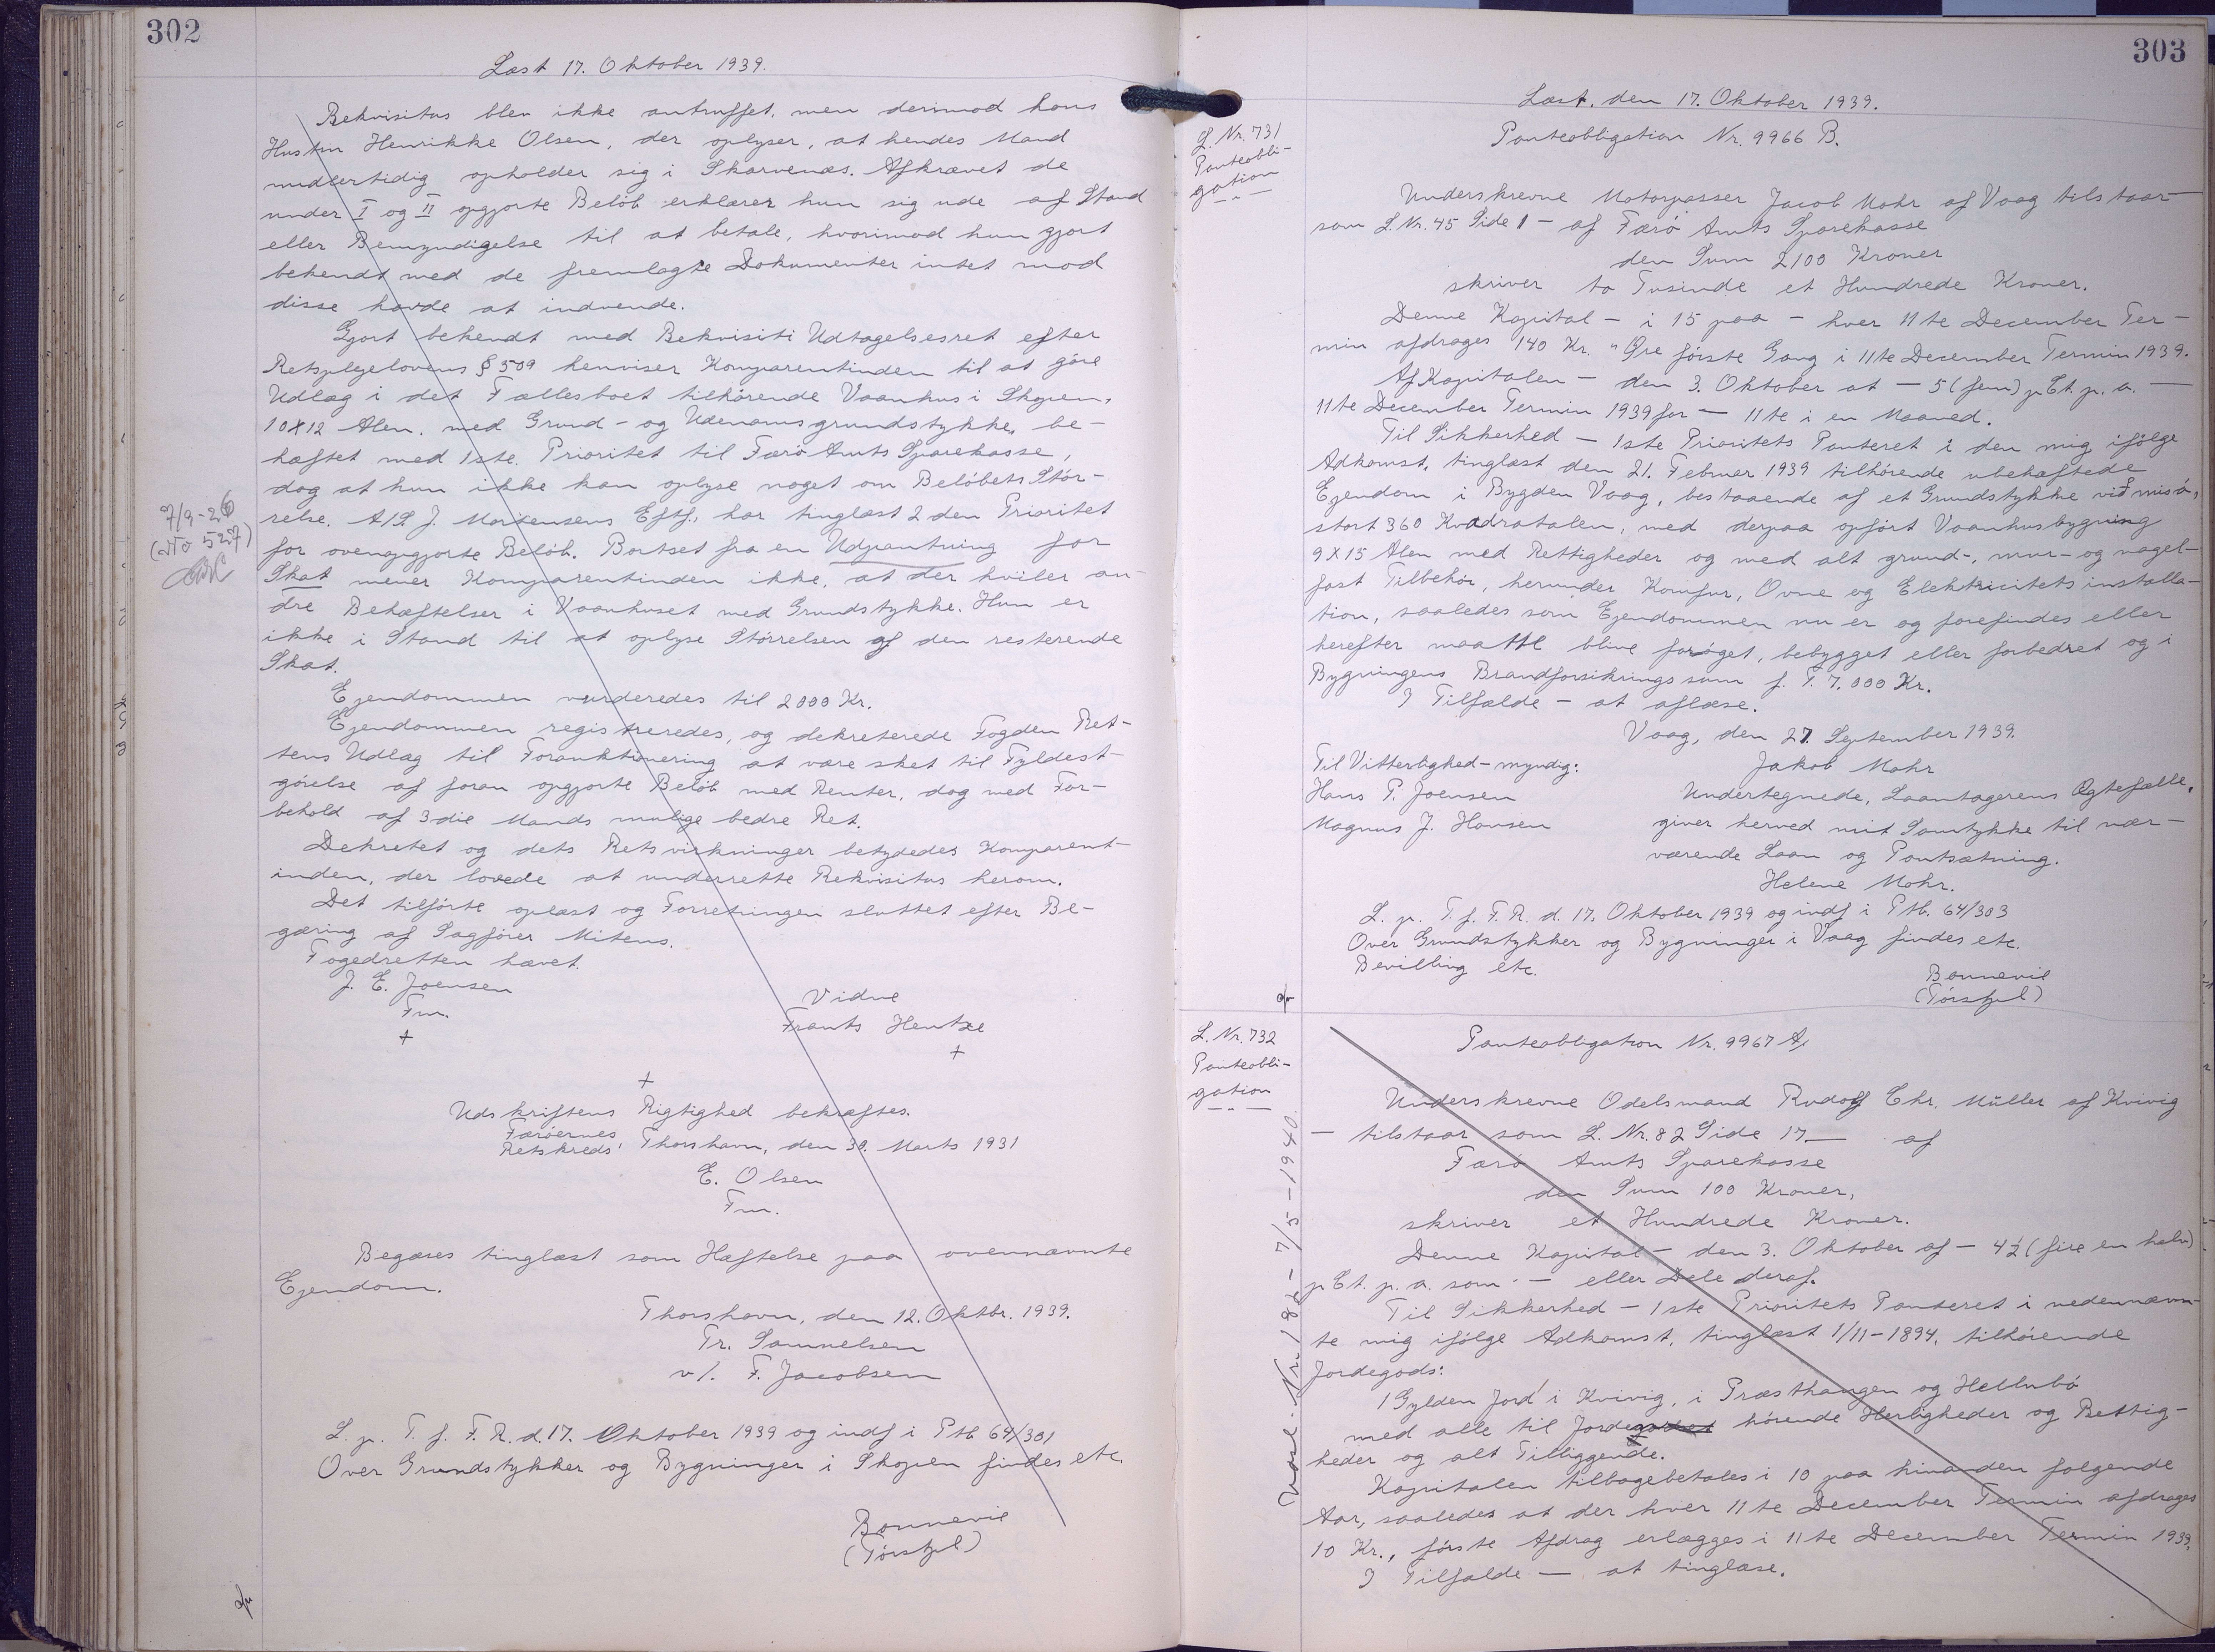 302
Læst 17. Oktober 1939.
Rekvisitus blev ikke antruffet, men derimod hans
Hustru Henrikke Olsen, der oplyser, at hendes Mand
midlertidig opholder sig i Skarvenæs. Afkrævet de
under I og II opgjorte Beløb erklærer hun sig ude af Stand
eller Bemyndigelse til at betale, hvorimod hun gjort
bekendt med de fremlagte Dokumenter intet mod
disse havde at indvende.
Gjort bekendt med Rekvisiti Udtagelsesret efter
Retsplejelovens § 509 henviser Komparentinden til at göre
Udlæg i det Fællesboet tilhörende Vaanhus i Skopen,
10 X 12 Alen, med Grund- og Udenomsgrundstykke, be-
hæftet med 1ste Prioritet til Færö Amts Sparekasse,
dog at hun ikke kan oplyse noget om Beløbets Stör-
relse. A/S J. Mortensens Eftf., har tinglæst 2 den Prioritet
for ovenopgjorte Beløb. Bortset fra en Udpantning for
Skat mener Komparentinden ikke, at der hviler an-
dre Behæftelser i Vaanhuset med Grundstykke. Hun er
ikke i Stand til at oplyse Störrelsen af den resterende
Skat.
7/9-26
(No 527)
Ejendommen vurderedes til 2000 Kr.
Ejendommen registreredes, og dekreterede Fogden Ret-
tens Udlæg til Foranktionering at være sket til Fyldest-
görelse af foran opgjorte Beløb med Renter, dog med For-
behold af 3die Mands mulige bedre Ret.
Dekretet og dets Retsvirkninger betydedes Komparent-
inden, der lovede at underrette Rekvisitus herom.
Det tilförte oplæst og Forretningen sluttet efter Be-
gæring af Sagförer Mitens.
Fogedretten hævet.
J. E. Joensen
Fm.
+
Vidne
Frants Hentze
+
+
Udskriftens Rigtighed bekræftes.
Færöernes Retskreds, Thorshavn, den 30. Marts 1931
E. Olsen
Fm.
Begæres tinglæst som Hæftelse paa ovennævnte
Ejendom.
Thorshavn, den 12. Oktbr. 1939.
Tr. Samuelsen
v/. F. Jacobsen
L. p. T. f. F. R. d. 17. Oktober 1939 og indf i Ptb 64/301
Over Grundstykker og Bygninger i Skopen findes etc.
Bonnevie
303
Læst. den 17. Oktober 1939.
L. Nr. 731
Panteobli-
gation
Panteobligation Nr. 9966 B.
Underskrevne Motorpasser Jacob Mohr af Vaag tilstaar
som L. Nr. 45 Side 1 - af Færö Amts Sparekasse
den Sum 2100 Kroner
skriver to Tusinde et Hundrede Kroner.
Denne Kapital - i 15 paa - hver 11te December Ter-
min afdrages 140 Kr. " Øre förste Gang i 11te December Termin 1939.
Af Kapitalen - den 3. Oktober at - 5 (fem) p Ct. p. a. -
11te December Termin 1939 for - 11te i en Maaned.
Til Sikkerhed - 1ste Prioritets Panteret i den mig ifölge
Adkomst, tinglæst den 21. Februar 1939 tilhörende ubehæftede
Ejendom i Bygden Vaag, bestaaende af et Grundstykke við misá,
stort 360 Kvadratalen, med derpaa opfört Vaanhusbygning
9 X 15 Alen med Rettigheder og med alt grund-, mur- og nagel-
fast Tilbehör, herunder Komfur, Ovne og Elektricitetsinstalla-
tion, saaledes som Ejendommen nu er og forefindes eller
herefter maatte blive forøget, bebygget eller forbedret og i
Bygningens Brandforsikringssum f. T. 7.000 Kr.
I Tilfælde - at aflæse.
Vaag, den 27. September 1939.
Til Vitterlighed - myndig:
Hans P. Joensen
Magnus J. Hansen
Jakob Mohr
Undertegnede, Laantagerens Ægtefælle,
giver herved mit Samtykke til nær-
værende Laan og Pantsætning.
Helene Mohr.
L. p. T. f. F. R. d. 17. Oktober 1939 og indf i Ptb. 64/303
Over Grundstykker og Bygninger i Vaag findes etc.
Bevilling etc.
Bonnevie
L. Nr. 732
Panteobli-
gation
Panteobligation Nr. 9967 A
Underskrevne Odelsmand Rudolf Chr. Müller af Kvivig
- tilstaar som L. Nr. 82 Side 17 - af
Færö Amts Sparekasse
den Sum 100 Kroner,
skriver et Hundrede Kroner.
Denne Kapital - den 3. Oktober af - 4½ (fire en halv)
p Ct. p. a. som - eller Dele deraf.
Til Sikkerhed - 1ste Prioritets Panteret i nedennævn-
te mig ifölge Adkomst, tinglæst 1/11-1894, tilhörende
Jordegods:
1 Gylden Jord i Kvivig, i Præsthaugen og Hellubö
med alle til Jorden hörende Herligheder og Rettig-
heder og alt Tilliggende.
Kapitalen tilbagebetales i 10 paa hinanden følgende
Aar, saaledes at der hver 11te December Termin afdrages
10 Kr., förste Afdrag erlægges i 11te December Termin 1939.
I Tilfælde - at tinglæse.